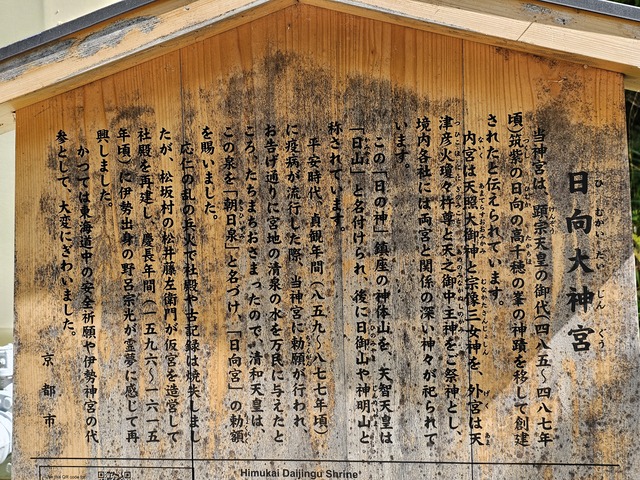 日向大神宮
ひむかいだいじんぐう
当神宮は、顕宗天皇の御代(四八五〜四八七年
頃)筑紫の日向の高千穂の峯の神蹟を移して創建
されたと伝えられています。
内宮は天照大御神と宗像三女神を、外宮は天
津彦火瓊々杵尊と天之御中主神をご祭神とし、
境内各社には両宮と関係の深い神々が祀られて
います。
この「日の神」鎮座の神体山を、天智天皇は
「日山」と名付けられ、後に日御山や神明山と
称されています。
平安時代、貞観年間(八五九〜八七七年頃)
に疫病が流行した際、当神宮に勅願が行われ、
お告げ通りに宮地の清泉の水を万民に与えたと
ころ、たちまちおさまったので、清和天皇は、
この泉を「朝日泉」と名づけ、「日向宮」の勅額
を賜いました。
応仁の乱の兵火で社殿や古記録は焼失しまし
たが、松坂村の松井藤左衛門が仮宮を造営して
社殿を再建し、慶長年間(一五九六〜一六一五
年頃)に伊勢出身の野呂宗光が霊夢に感じて再
興しました。
かつては東海道中の安全祈願や伊勢神宮の代
参として、大変にぎわいました。
京都市
Himukai Daijingu Shrine